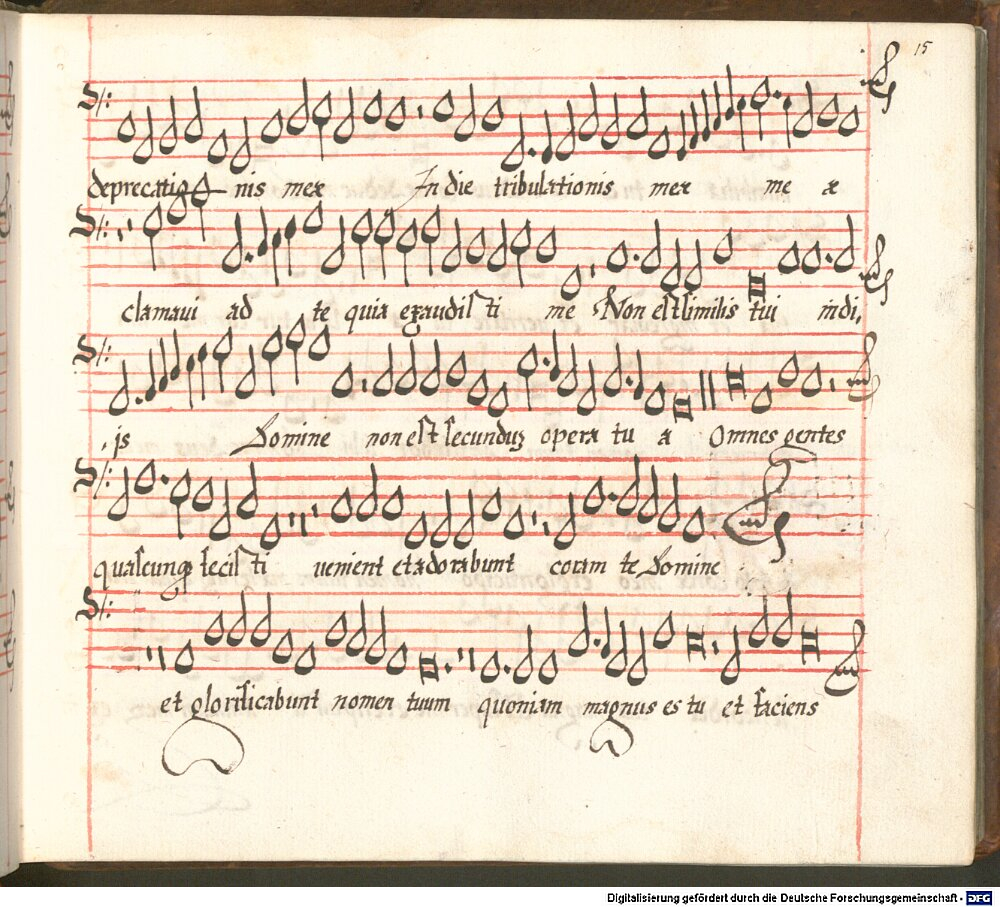 15
deprecatio nis meæ In die tribulationis meæ me æ
clamaui ad te quia exaudisti me Non est similis tui in di,
,is Domine non est secunduz opera tu a Omnes gentes
quascunq fecisti uenient et adorabunt coram te Domine
et glorificabunt nomen tuum quoniam magnus es tu et faciens
Digitalisierung gefördert durch die Deutsche Forschungsgemeinschaft - DFG